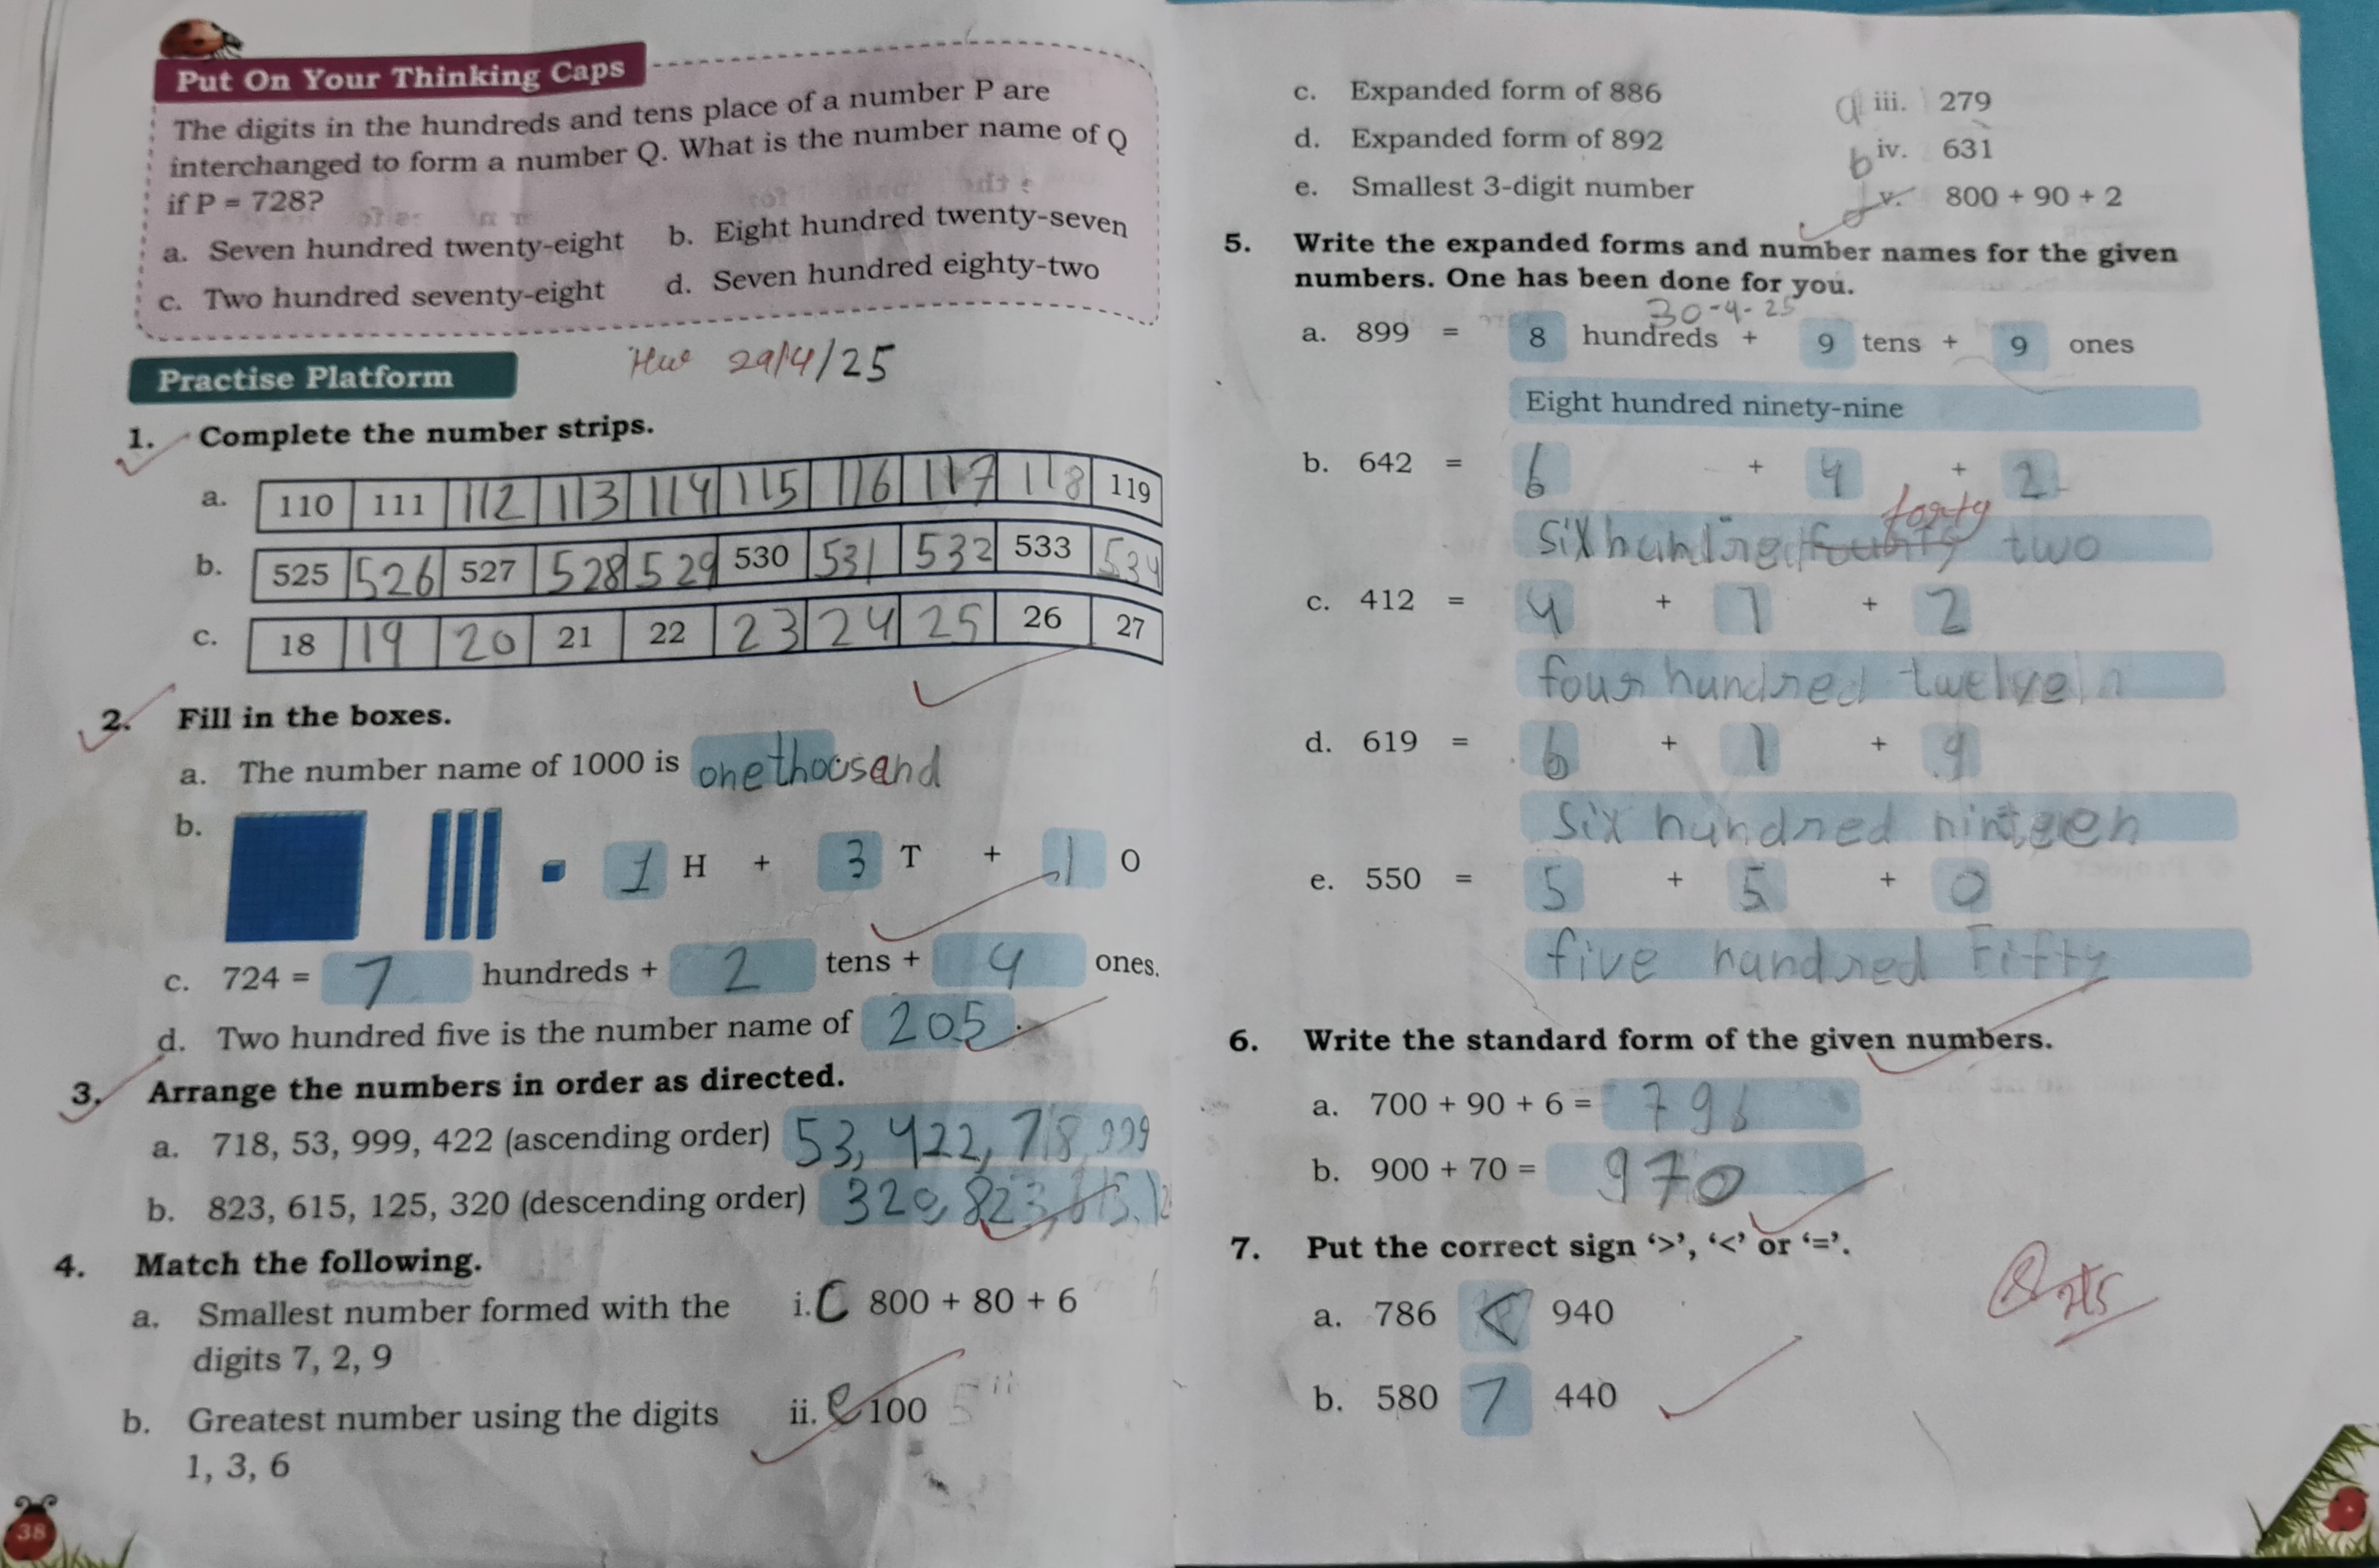 Put On Your Thinking Caps
The digits in the hundreds and tens place of a number P are
interchanged to form a number Q. What is the number name of Q
if P = 728?
a. Seven hundred twenty-eight b. Eight hundred twenty-seven
c. Two hundred seventy-eight d. Seven hundred eighty-two
Practise Platform
29/4/25
1. Complete the number strips.
a. 110 111 112 113 114 115 116 117 118 119
b. 525 526 527 528 529 530 531 532 533 534
c. 18 19 20 21 22 23 24 25 26 27
2. Fill in the boxes.
a. The number name of 1000 is one thousand
b. 1 H + 3 T + 1 O
c. 724 = 7 hundreds + 2 tens + 4 ones.
d. Two hundred five is the number name of 205.
3. Arrange the numbers in order as directed.
a. 718, 53, 999, 422 (ascending order) 53, 422, 718, 999
b. 823, 615, 125, 320 (descending order) 320, 823, 615, 12
4. Match the following.
a. Smallest number formed with the i. C 800 + 80 + 6
digits 7, 2, 9
b. Greatest number using the digits ii. e 100
1, 3, 6
38
c. Expanded form of 886 a iii. 279
d. Expanded form of 892 b iv. 631
e. Smallest 3-digit number d v. 800 + 90 + 2
5. Write the expanded forms and number names for the given
numbers. One has been done for you.
30-4-25
a. 899 = 8 hundreds + 9 tens + 9 ones
Eight hundred ninety-nine
b. 642 = 6 + 4 + 2
forty
six two
c. 412 = 4 + 1 + 2
four hundred twelve
d. 619 = 6 + 1 + 9
six hundred ninteen
e. 550 = 5 + 5 + 0
five hundred Fifty
6. Write the standard form of the given numbers.
a. 700 + 90 + 6 = 796
b. 900 + 70 = 970
7. Put the correct sign '>', '<' or '='.
a. 786 < 940
b. 580 7 440